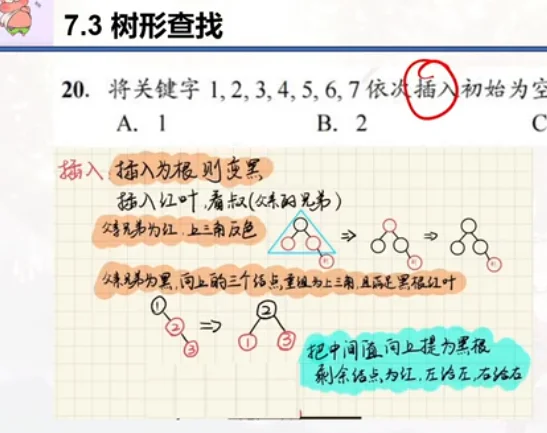 7.3 树形查找
20. 将关键字 1, 2, 3, 4, 5, 6, 7 依次插入初始为空
A. 1 B. 2 C
插入 插入为根则变黑
插入红叶,看叔(父亲的兄弟)
父亲兄弟为红,上三角反色
父亲兄弟为黑,向上的三个结点重组为上三角,且满足黑根红叶
1 2
2 ⇒
3 1 3
把中间值向上提为黑根
剩余结点为红,左给左,右给右